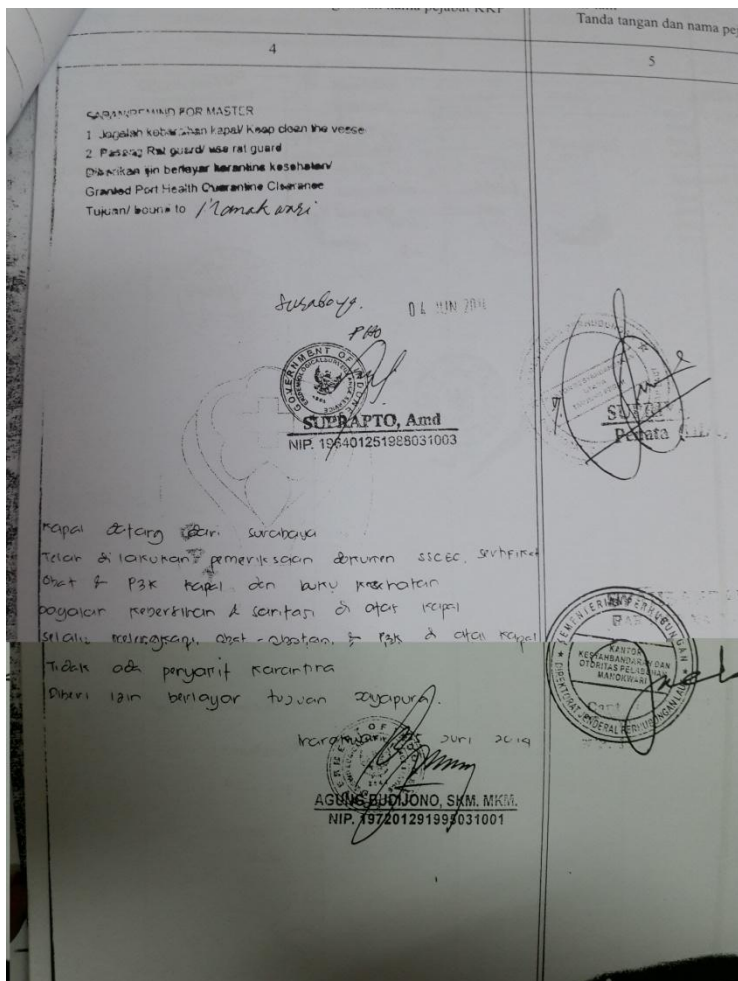 nama pejabat KKP
Tanda tangan dan nama pej
4
5
SARAN/REMIND FOR MASTER
1 Jagalah kebersihan kapal/ Keep clean the vesse
2 Pasang Rat guard/ use rat guard
Diberikan ijin berlayar karantina kesehatan/
Granted Port Health Quarantine Clearance
Tujuan/ bound to Manokwari
Surabaya. 04 JUN
GOVERNMENT OF INDONE
SUPRAPTO, Amd
NIP. 196401251988031003
Penata
Kapal datang dari Surabaya
Telah dilakukan pemeriksaan dokumen SSCEC, sertifikat
Obat & P3K kapal dan buku kesehatan
kebersihan & sanitasi di atas kapal
obat-obatan & P3K di atas kapal
Tidak ada penyakit karantina
Diberi izin berlayar tujuan Jayapura.
Juni 2019
AGUNG BUDIJONO, SKM. MKM.
NIP. 197201291995031001
KEMENTERIAN PERHUBUNGAN
KANTOR
KESYAHBANDARAN DAN
OTORITAS PELABUHAN
MANOKWARI
DIREKTORAT JENDERAL PERHUBUNGAN LAUT